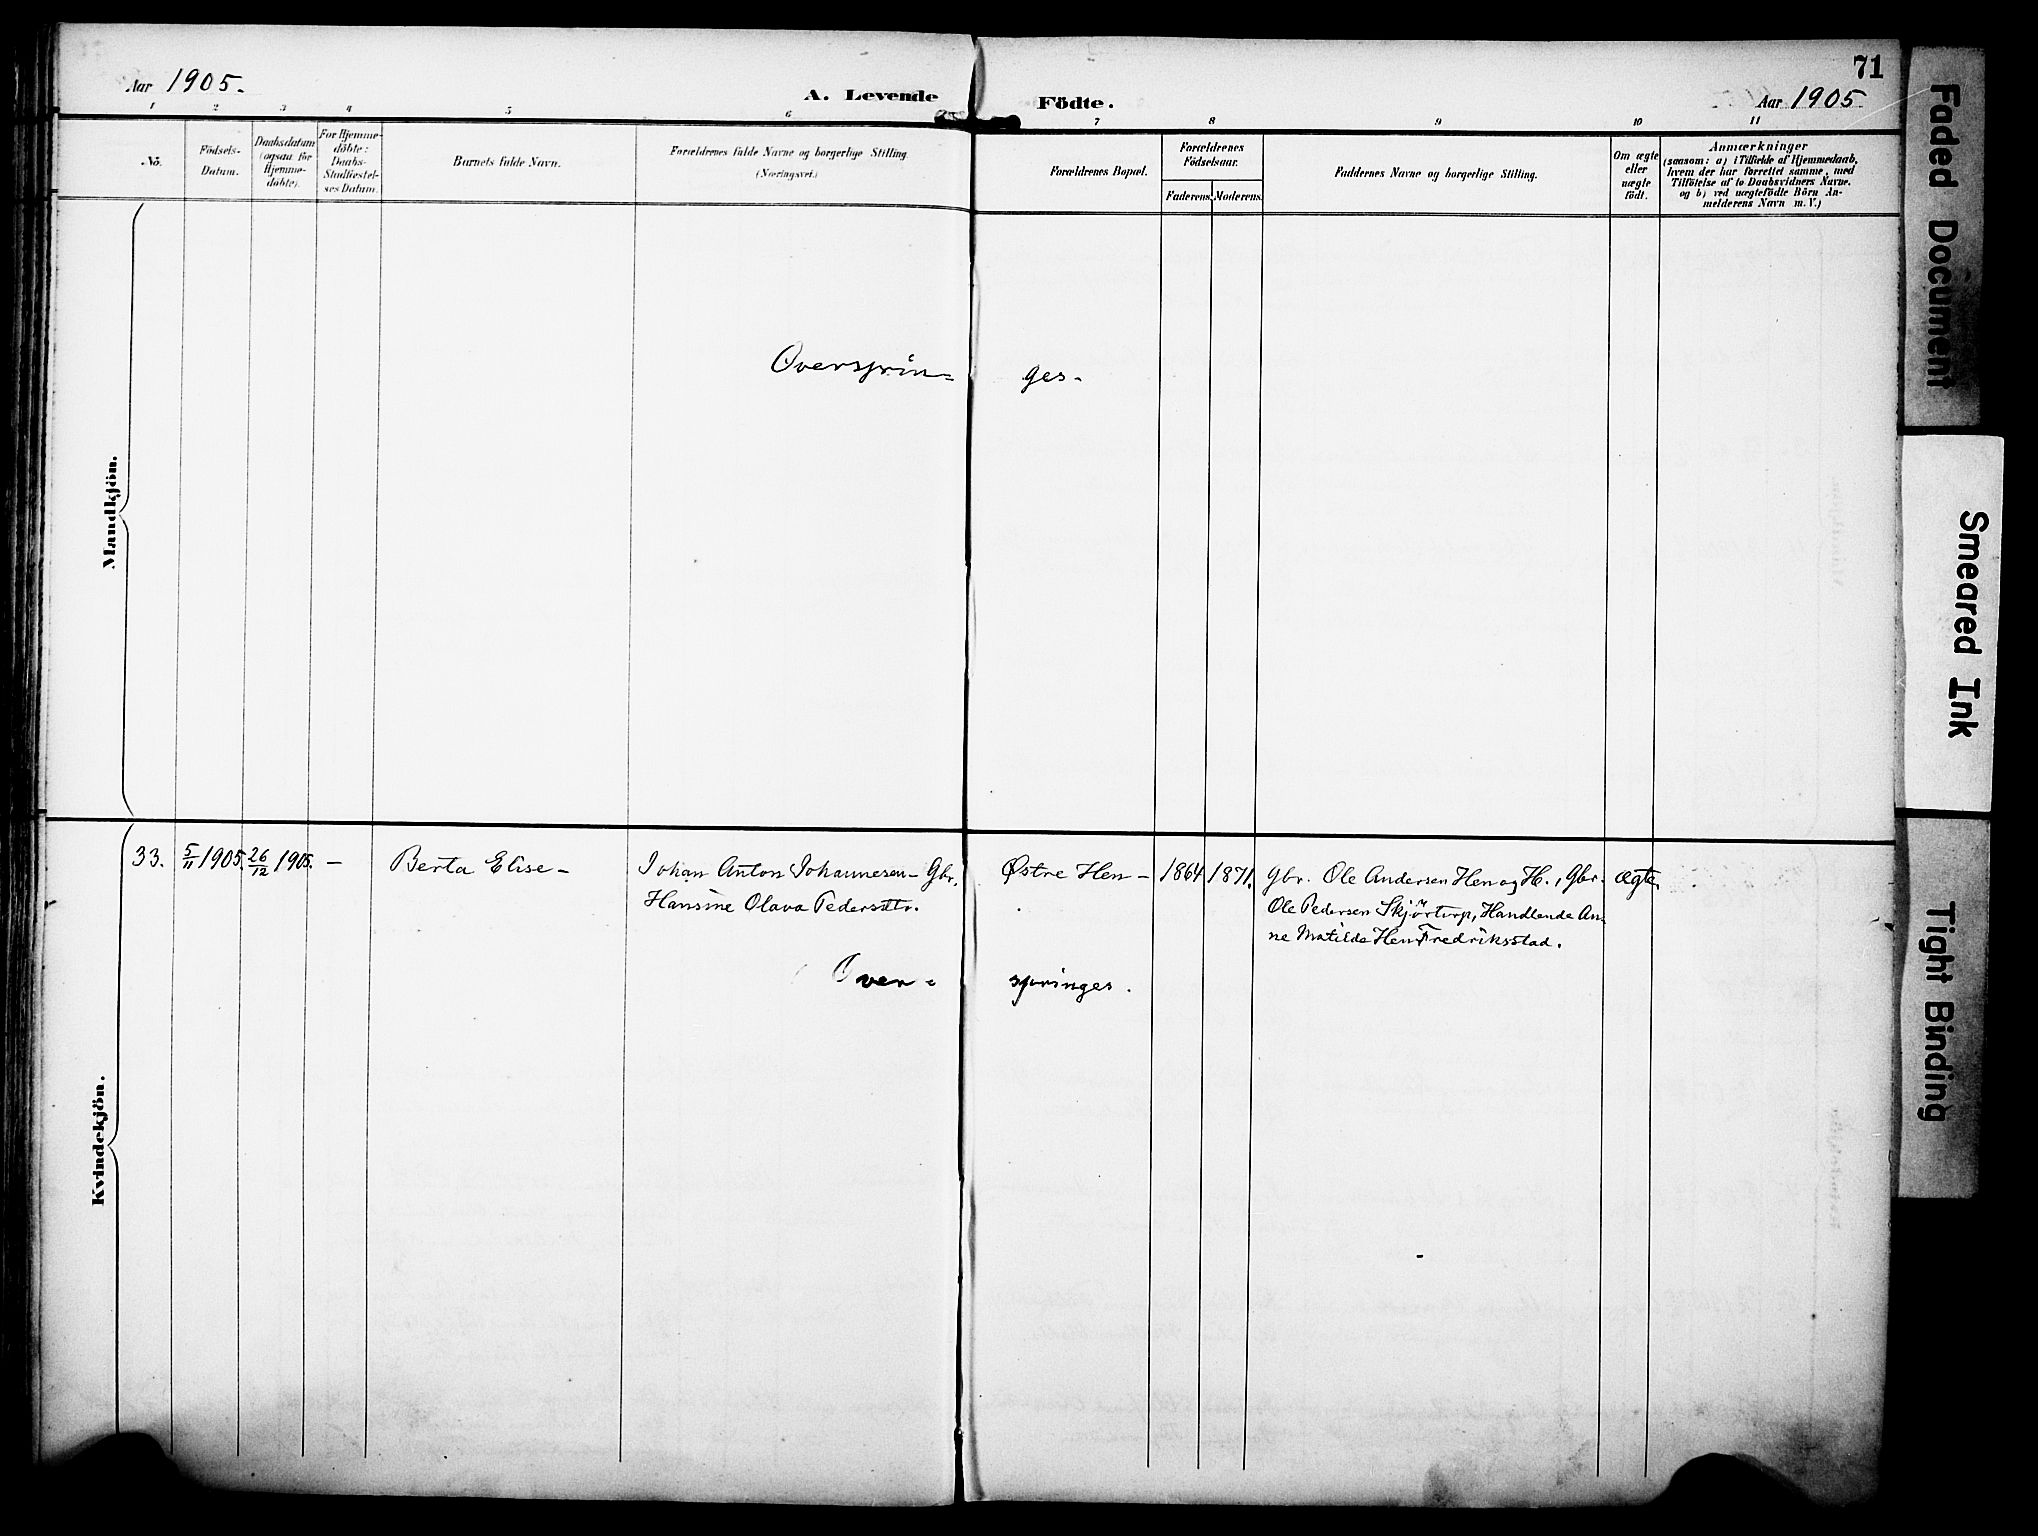 71
Aar 1905.
A. Levende Födte.
Aar 1905
1 2 3 4 5 6 7 8 9 10 11
No.
Födsels-
Datum.
Daabsdatum
(ogsaa for
Hjemme-
döbte).
For Hjemme-
döbte:
Daabs-
Stadfæstel-
ses Datum.
Barnets fulde Navn.
Forældrenes fulde Navne og borgerlige Stilling.
(Næringsvei.)
Forældrenes Bopæl.
Forældrenes
Födselsaar.
Faderens. Moderens.
Faddernes Navne og borgerlige Stilling.
Om ægte
eller
uægte
födt.
Anmærkninger
(saasom: a) i Tilfælde af Hjemmedaab,
hvem der har forrettet samme, med
Tilföielse af to Daabsvidners Navne.
og b) ved uægtefödte Börn An-
melderens Navn m. V.)
Mandkjön.
Oversprin- ges-
Kvindekjön.
33. 5/11 1905. 26/12 1905. - Berta Elise - Johan Anton Johannesen - Gbr. Østre Hen - 1864 1871. Gbr. Ole Andersen Hen og H., Gbr. ægte.
Hansine Olava Pedersdtr. Ole Pedersen Skjörtorp, Handlende An-
ne Matilde Hen Fredriksstad.
Over- springes.
Faded Document
Smeared Ink
Tight Binding